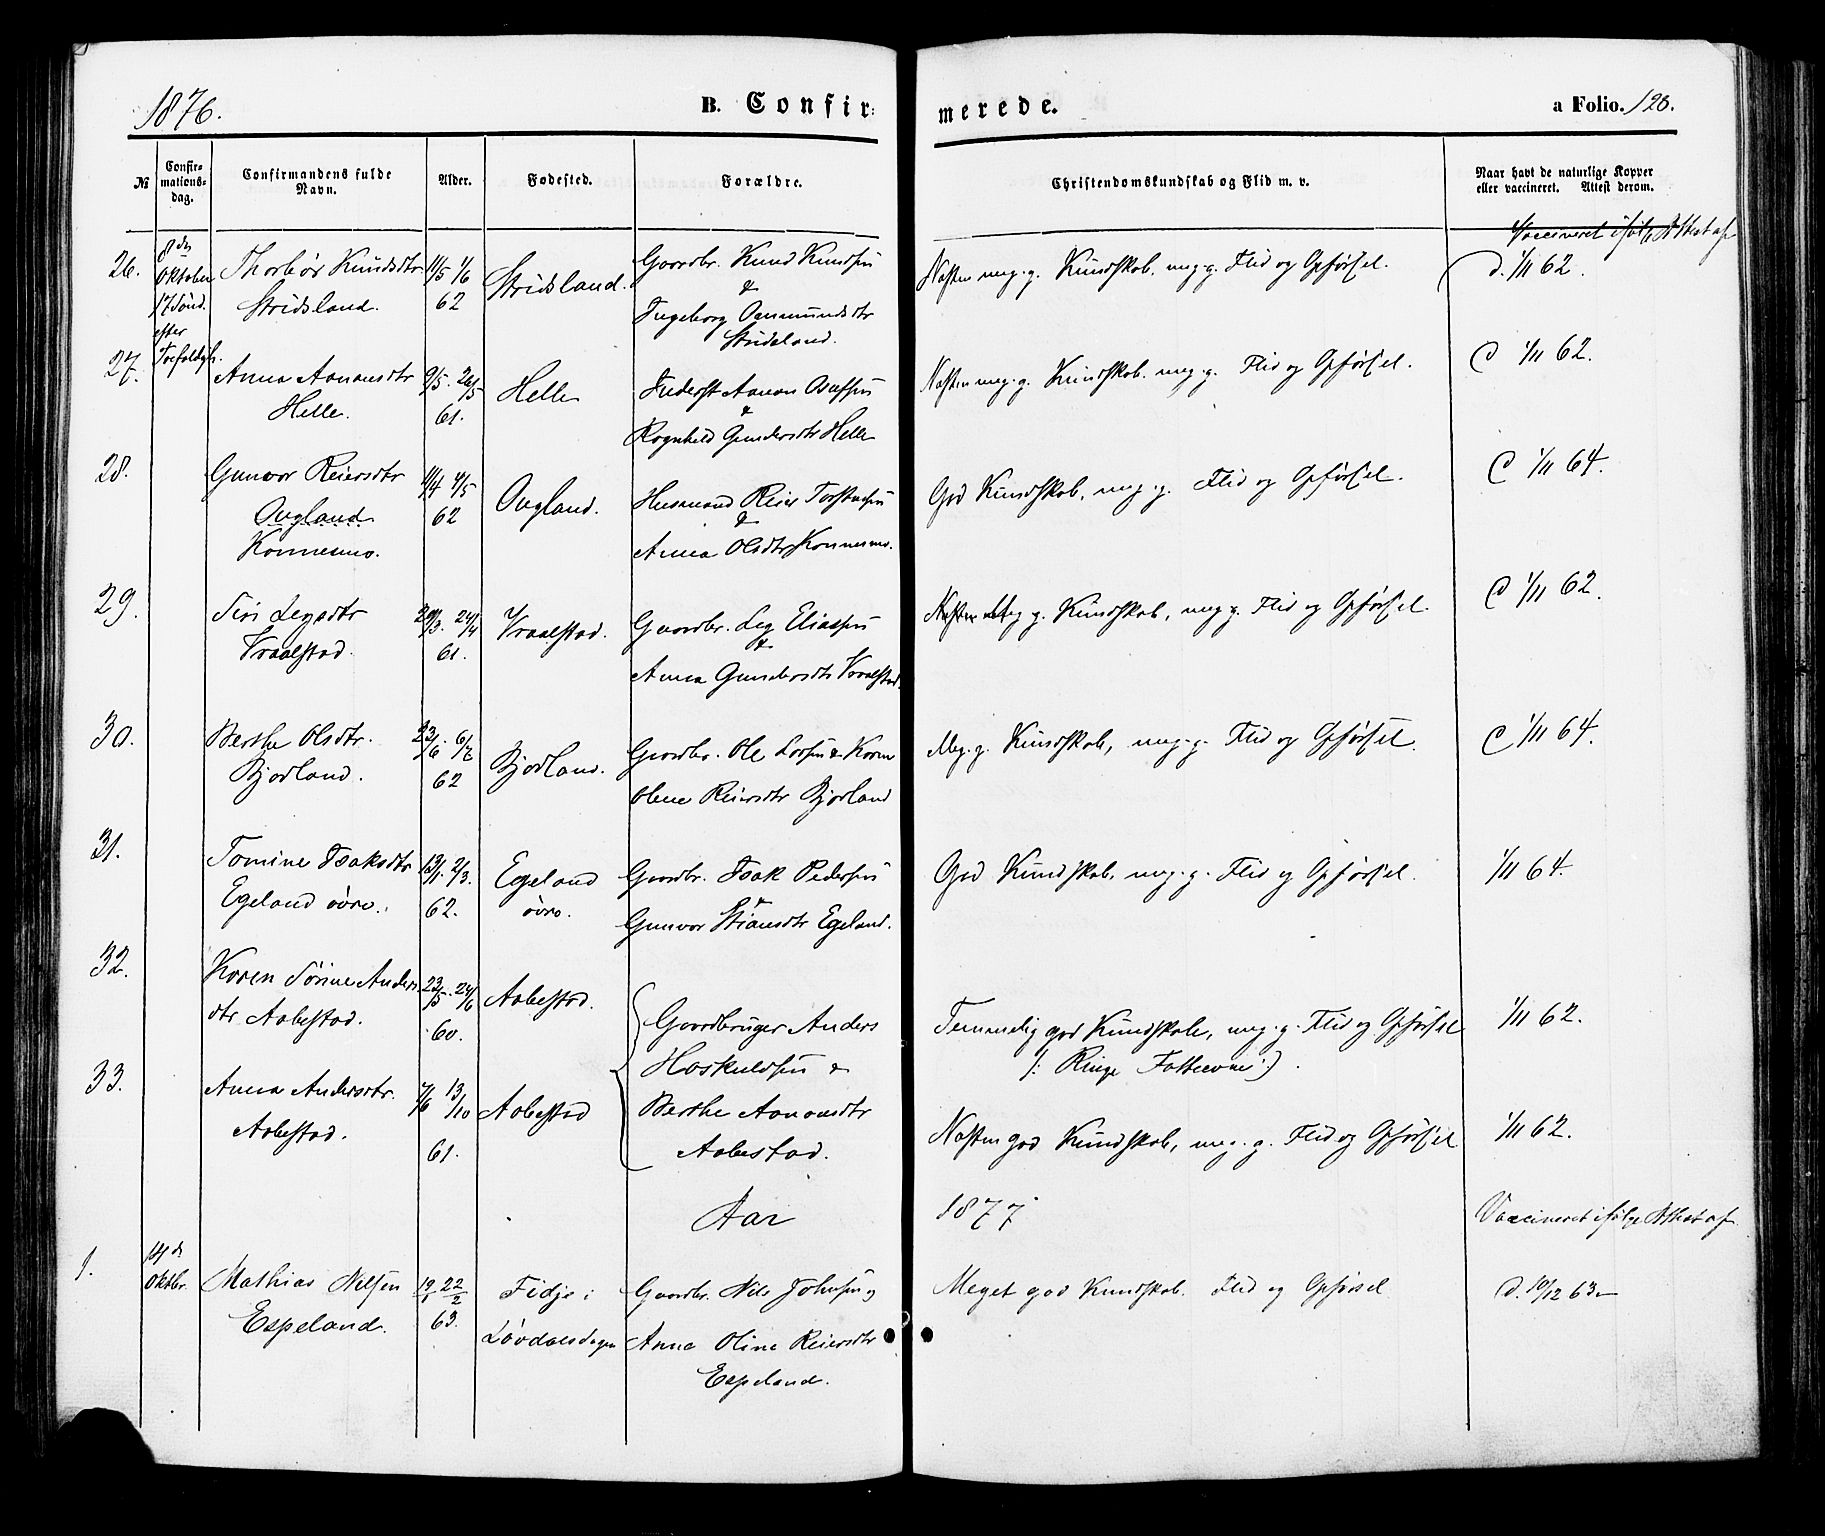 1876.
B. Confir-
merede.
a Folio. 128.
№
Confir-
mations-
dag.
Confirmandens fulde
Navn.
Alder.
Fødested.
Forældre.
Christendomskundskab og Flid m. v.
Naar havt de naturlige Kopper
eller vaccineret. Attest derom.
Vaccineret ifølge Attest af
26.
8de
Oktober
17 Sønd.
efter
Trefoldigh.
Thorbør Knudsdtr
Stridsland.
11/5 1/6
62
Stridsland.
Gaardbr. Knud Knudsen
&
Ingeborg Aanmundsdtr
Stridsland.
Næsten meg. g. Kundskab. meg g. Flid og Opførsel.
d. 1/11 62.
27.
Anna Aanonsdtr
Helle.
9/5. 26/5
61.
Helle
Inderst Aanon
&
Ragnhild Gundersdtr Helle
Næsten meg. g. Kundskab. meg. g. Flid og Opførsel.
d 1/11 62.
28.
Gunvor Reiersdtr
Augland
Konnesmo.
11/4 4/5
62
Augland.
Husmand Reier Torstensen
&
Anna Olsdtr Konnesmo.
God Kundskab, meg. g. Flid og Opførsel.
d 1/11 64.
29.
Siri Legsdtr
Vraalstad.
29/3. 24/4
61.
Vraalstad.
Gaardbr. Leg Eliassen
&
Anna Gundersdtr Vraalstad.
Næsten meg g. Kundskab, meg g. Flid og Opførsel.
d 1/11 62.
30.
Berthe Olsdtr.
Bjørland.
23/6. 6/7
62
Bjørland.
Gaardbr. Ole Larsen & Karen
Olene Reiersdtr Bjørland
Meg. g. Kundskab, meg. g. Flid og Opførsel.
d 1/11 64.
31.
Tomine Isaksdtr
Egeland øvre.
13/1. 2/3.
62.
Egeland
øvre.
Gaardbr. Isak Pedersen
&
Gunvor Stiansdtr Egeland.
God Kundskab, meg. g. Flid og Opførsel.
1/11 64.
32.
Karen Sørine Anders
dtr Aabestad.
23/5. 24/6
60.
Aabestad.
Gaardbruger Anders
Hoskuldsen &
Berthe Aanonsdtr
Aabestad.
Temmelig god Kundskab, meg. g. Flid og Opførsel
/: Ringe Fatteevne :/.
1/11 62.
33.
Anna Andersdtr.
Aabestad.
7/6 13/10
61.
Aabestad
Næsten god Kundskab, meg. g. Flid og Opførsel
1/11 62.
Aar
1877
Vaccineret ifølge Attest af
1.
14d
Oktbr.
Mathias Nilsen
Espeland.
19/1 22/2
63.
Fidje i
Løvdalsdagen
Gaardbr. Nils Johnsen og
Anna Oline Reiersdtr
Espeland.
Meget god Kundskab. Flid og Opførsel
d. 19/12 63